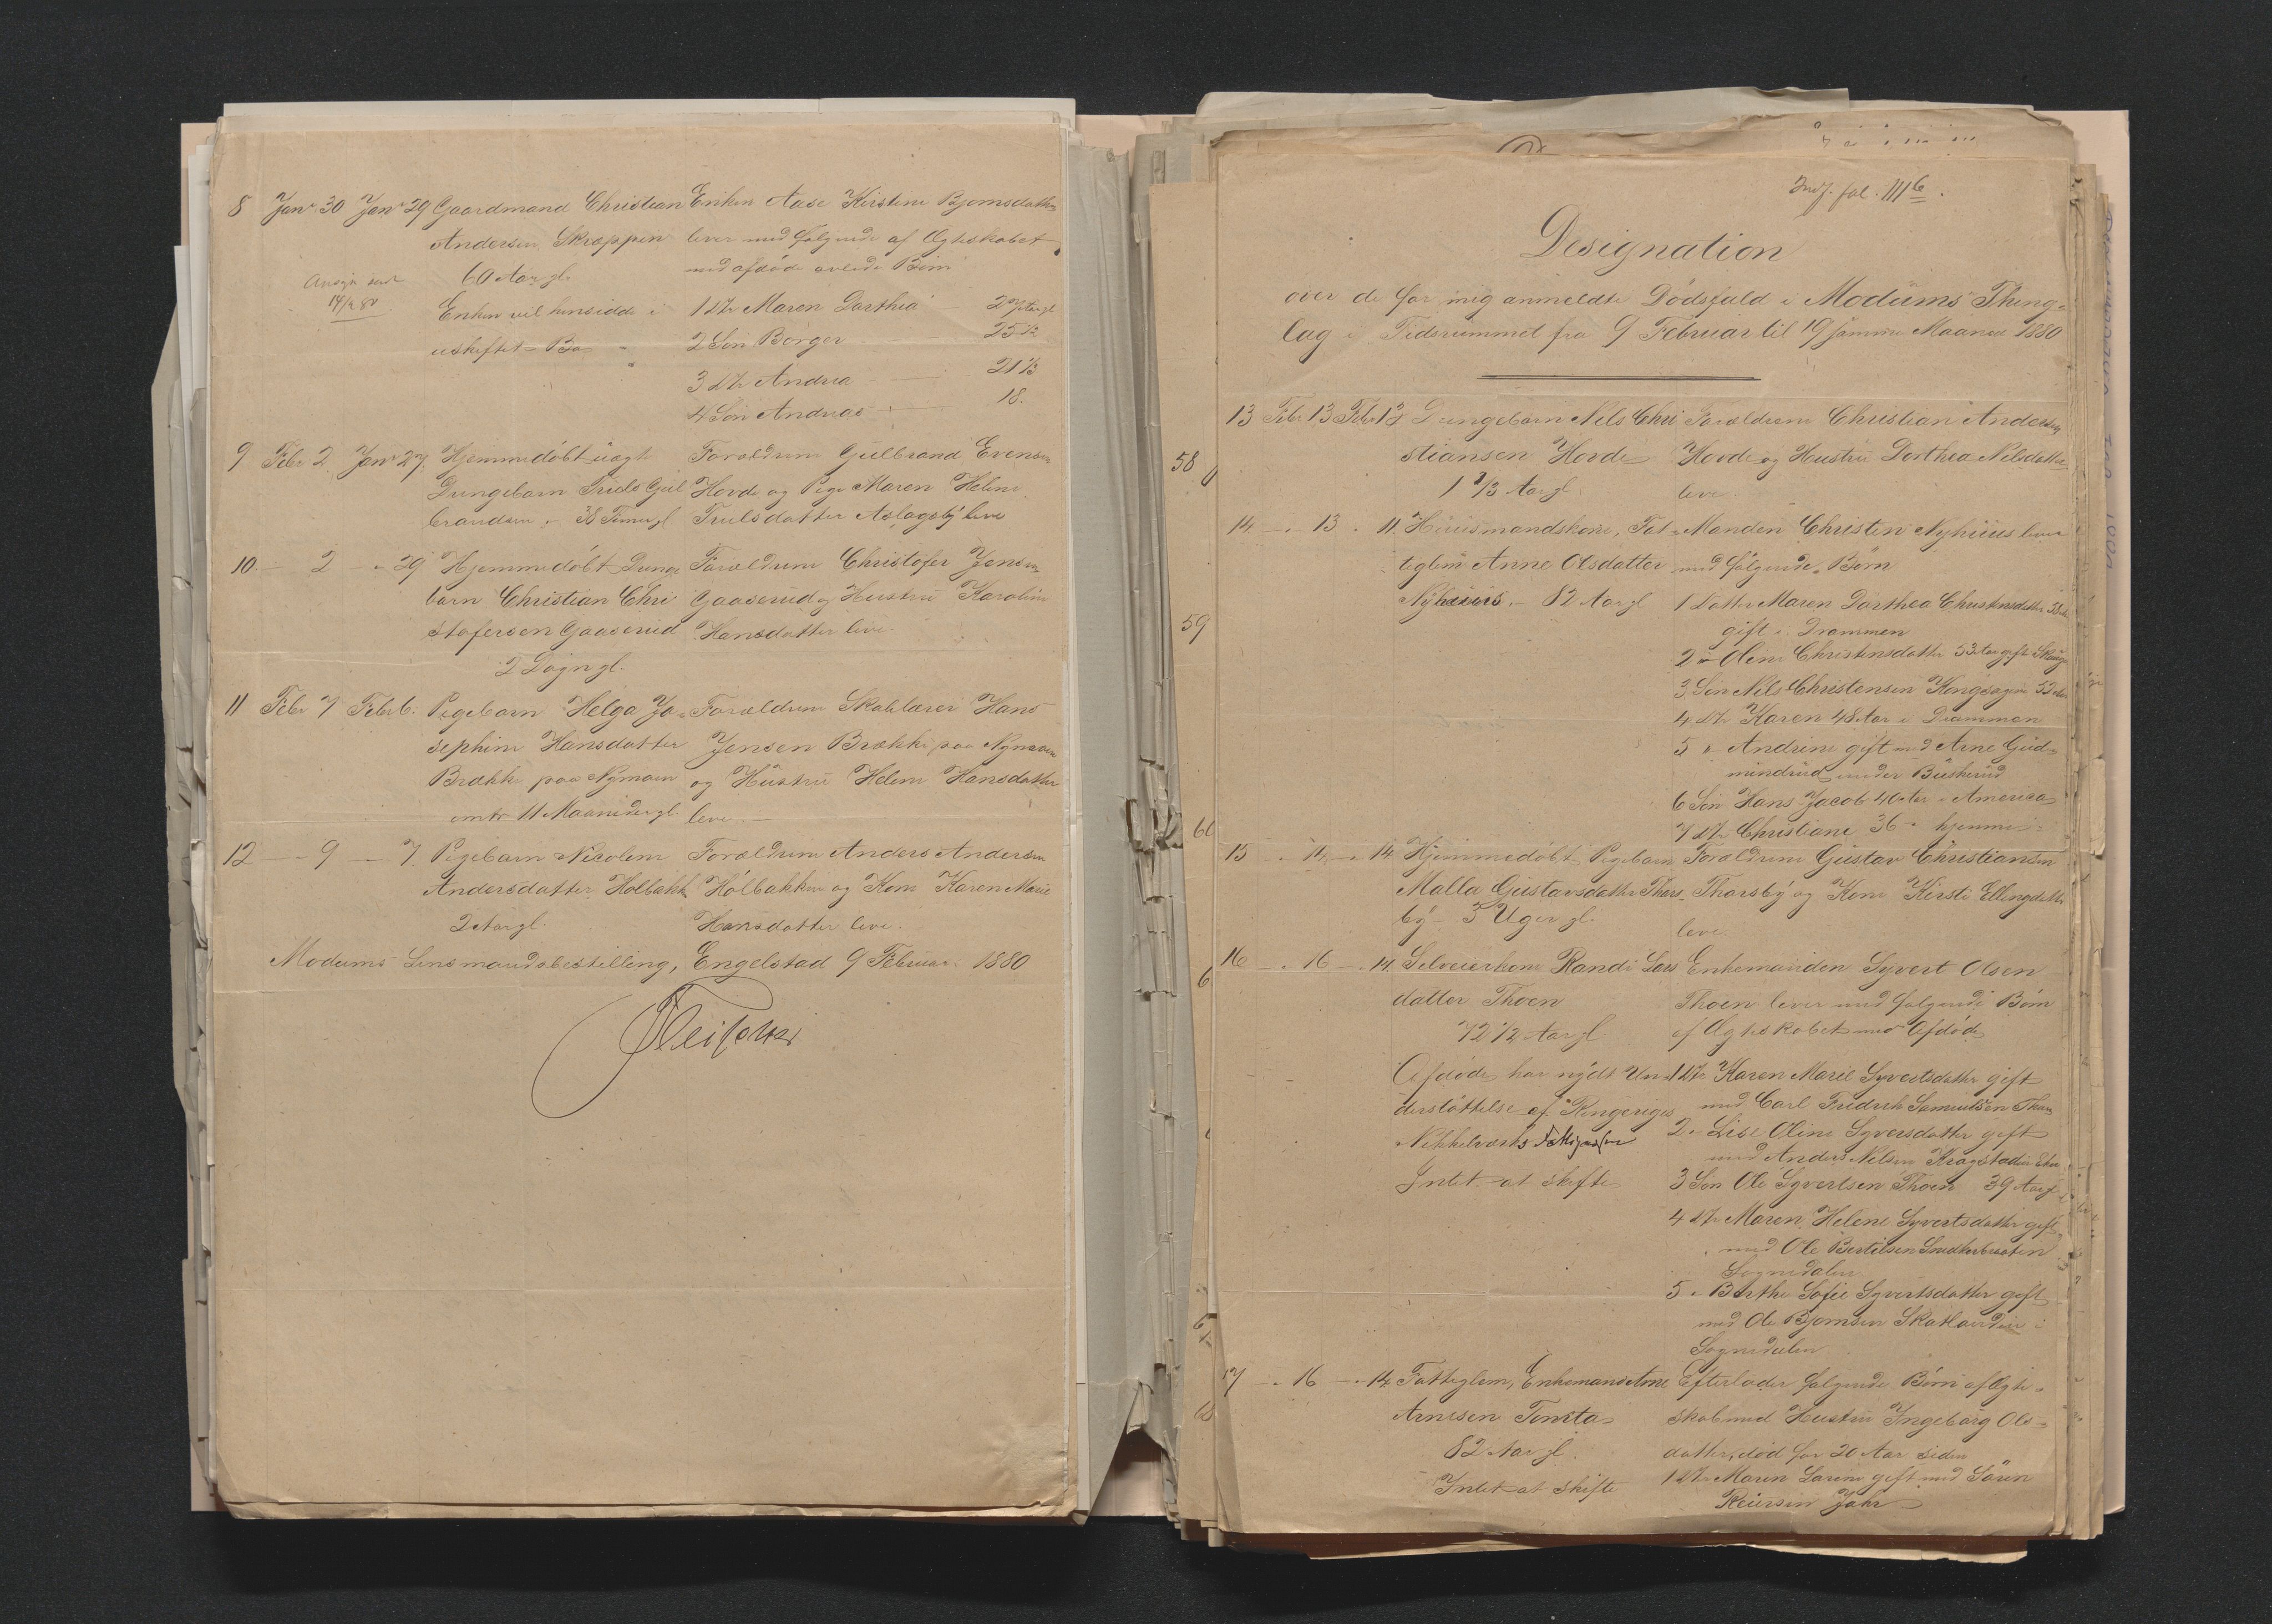 8 Janr 30 Janr 29 Gaardmand Christian Enken Aase Kirstine Bjornsdatter
Andersen Skreppen lever med følgende af Ægteskabet
60 Aar gl. med afdøde avlede Børn
14/2 80
Enken vil hensidde i 1 Dtr Maren Dorthea 27 Aar gl
uskiftet Bo 2 Søn Borger 25 1/2
3 Dtr Andrea 21 1/3
4 Søn Andreas 18.
9 Febr 2. Janr 27. Hjemmedøbt uægte Forældrene Gulbrand Evensen
Drengebarn Truls Gul Hovde og Pige Maren Helene
brandsen - 38 Timer gl Trulsdatter Aslagsby leve
10. - 2 - 29 Hjemmedøbt Drenge Forældrene Christofer Jensen
barn Christian Chri Gaaserud og Hustru Karoline
stofersen Gaaserud Hansdatter leve.
2 Døgn gl.
11 Febr 7 Febr 6. Pigebarn Helga Jo- Forældrene Skolelærer Hans
sephine Hansdatter Jensen Brække paa Nymoen
Brække paa Nymoen og Hustru Helene Hansdatter
omtr 11 Maaneder gl. leve.
12 - 9 - 7 Pigebarn Nicoline Forældrene Anders Andersen
Andersdatter Holbækk Holbækken og Kone Karen Marie
2 Aar gl. Hansdatter leve.
Modums Lensmandsbestilling, Engelstad 9 Februar 1880
Indf. fol. 111 b.
Designation
over de for mig anmeldte Dødsfald i Modums Thing-
lag i Tidsrummet fra 9 Februar til 19 samme Maaned 1880
13 Febr 13 Febr 13 Drengebarn Nels Chri Forældrene Christian Andersen
stiansen Hovde Hovde og Hustru Dorthea Nilsdatter
1 2/3 Aar gl. leve.
14 - 13 . 11 Huusmandskone, Fat- Manden Christen Nyhuus lever
teglem Anne Olsdatter med følgende Børn
Nyhuus. - 82 Aar gl 1 Datter Maren Dorthea Christensdatter
gift i Drammen
2 " Oline Christensdatter 53 Aar gift
3 Søn Nels Christensen Kongsagen 52 Aar
4 Dtr Karen 48 Aar i Drammen
5 " Andrine gift med Arne Gud-
mindrud under Buskerud
6 Søn Hans Jacob 40 Aar i America
7 Dtr Christiane 36 " hjemme
15 - 14 - 14 Hjemmedøbt Pigebarn Forældrene Gustav Christiansen
Malla Gustavsdatter Thors- Thorsby og Kone Kirsti Ellingsdatter
by - 3 Uger gl. leve
16 - 16 - 14 Selveierkone Randi Lars Enkemanden Syvert Olsen
datter Thoen Thoen lever med følgende Børn
72 1/2 Aar gl. af Ægteskabet med Afdøde
Afdøde har nydt Un- 1 Dtr Karen Marie Syvertsdatter gift
derstøttelse af Ringeriges med Carl Fredrik Samuelsen Thoen
Nikkelværks 2 - Lise Oline Syversdatter gift
med Anders Nilsen Krogstad i Eker
Intet at skifte 3 Søn Ole Syvertsen Thoen 39 Aar gl
4 Dtr Maren Helene Syvertsdatter gift
med Ole Bertilsen Snedkerbraaten
Sognedalen
5 - Birthe Sofie Syvertsdatter gift
med Ole Bjornsen i
Sognedalen
17 - 16 - 14 Fatteglem, Enkemand Arne Efterlader følgende Børn af Ægte-
Arnesen Tomta skab med Hustru Ingeborg Ols-
82 Aar gl. datter, død for 20 Aar siden
Intet at skifte 1 Dtr Maren Larine gift med Søren
Reiersen Jahr
58
59